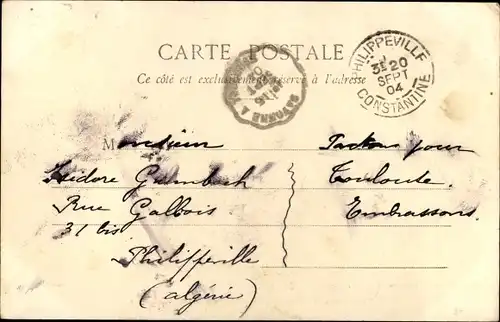 CARTE POSTALE
Ce côté est exclusivement réservé à l'adresse
PHILIPPEVILLE
3E 20
SEPT
04
CONSTANTINE
Monsieur
Isidore Gumbach
Rue Galbois
31 bis
Philippeville
(algérie)
pour
Toulouse
Embrassons